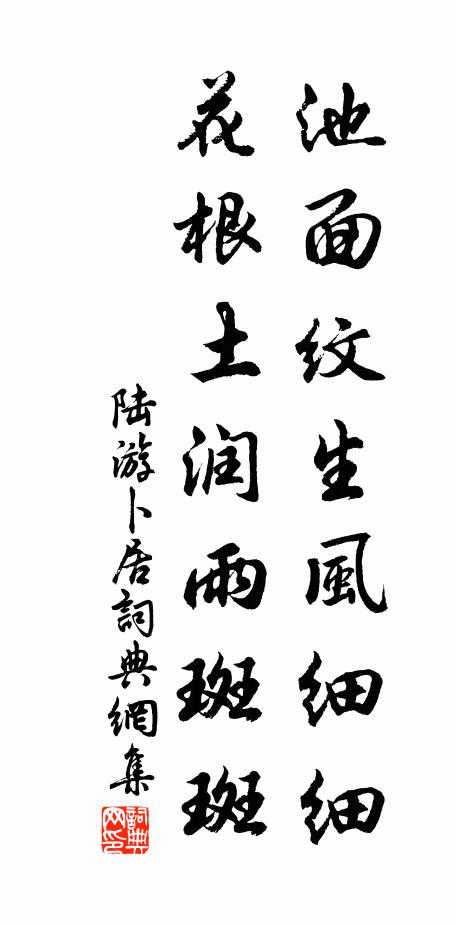 池面紋生風細細
花根土润雨斑斑
陆游卜居詞典網集
詞典
网印